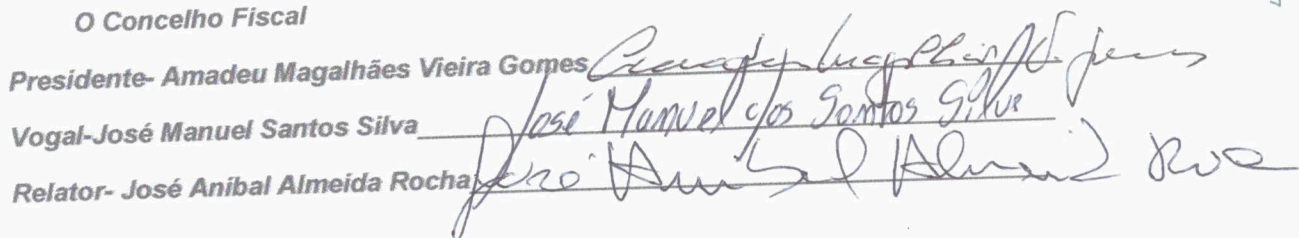 O Concelho Fiscal
Presidente- Amadeu Magalhães Vieira Gomes
Vogal-José Manuel Santos Silva José Manuel dos Santos Silva
Relator- José Aníbal Almeida Rocha José Aníbal Almeida